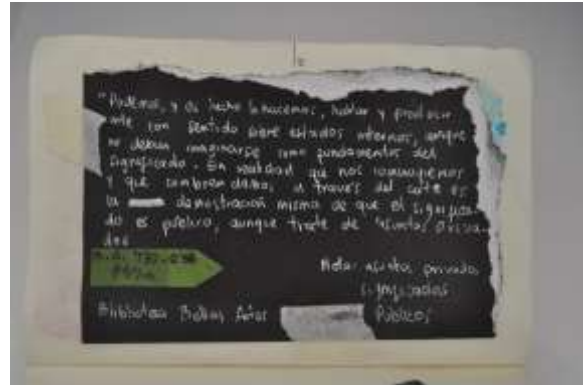 "Podemos, y de hecho lo hacemos, hablar y producir
arte con sentido sobre estados internos, aunque
no deban imaginarse como fundamentos del
significado. En realidad que nos conmovamos
y que también a través del arte es
la demostración misma de que el significa-
do es público, aunque trate de "asuntos priva-
dos
Nota: asuntos privados
significados
Públicos
Biblioteca Bellas Artes